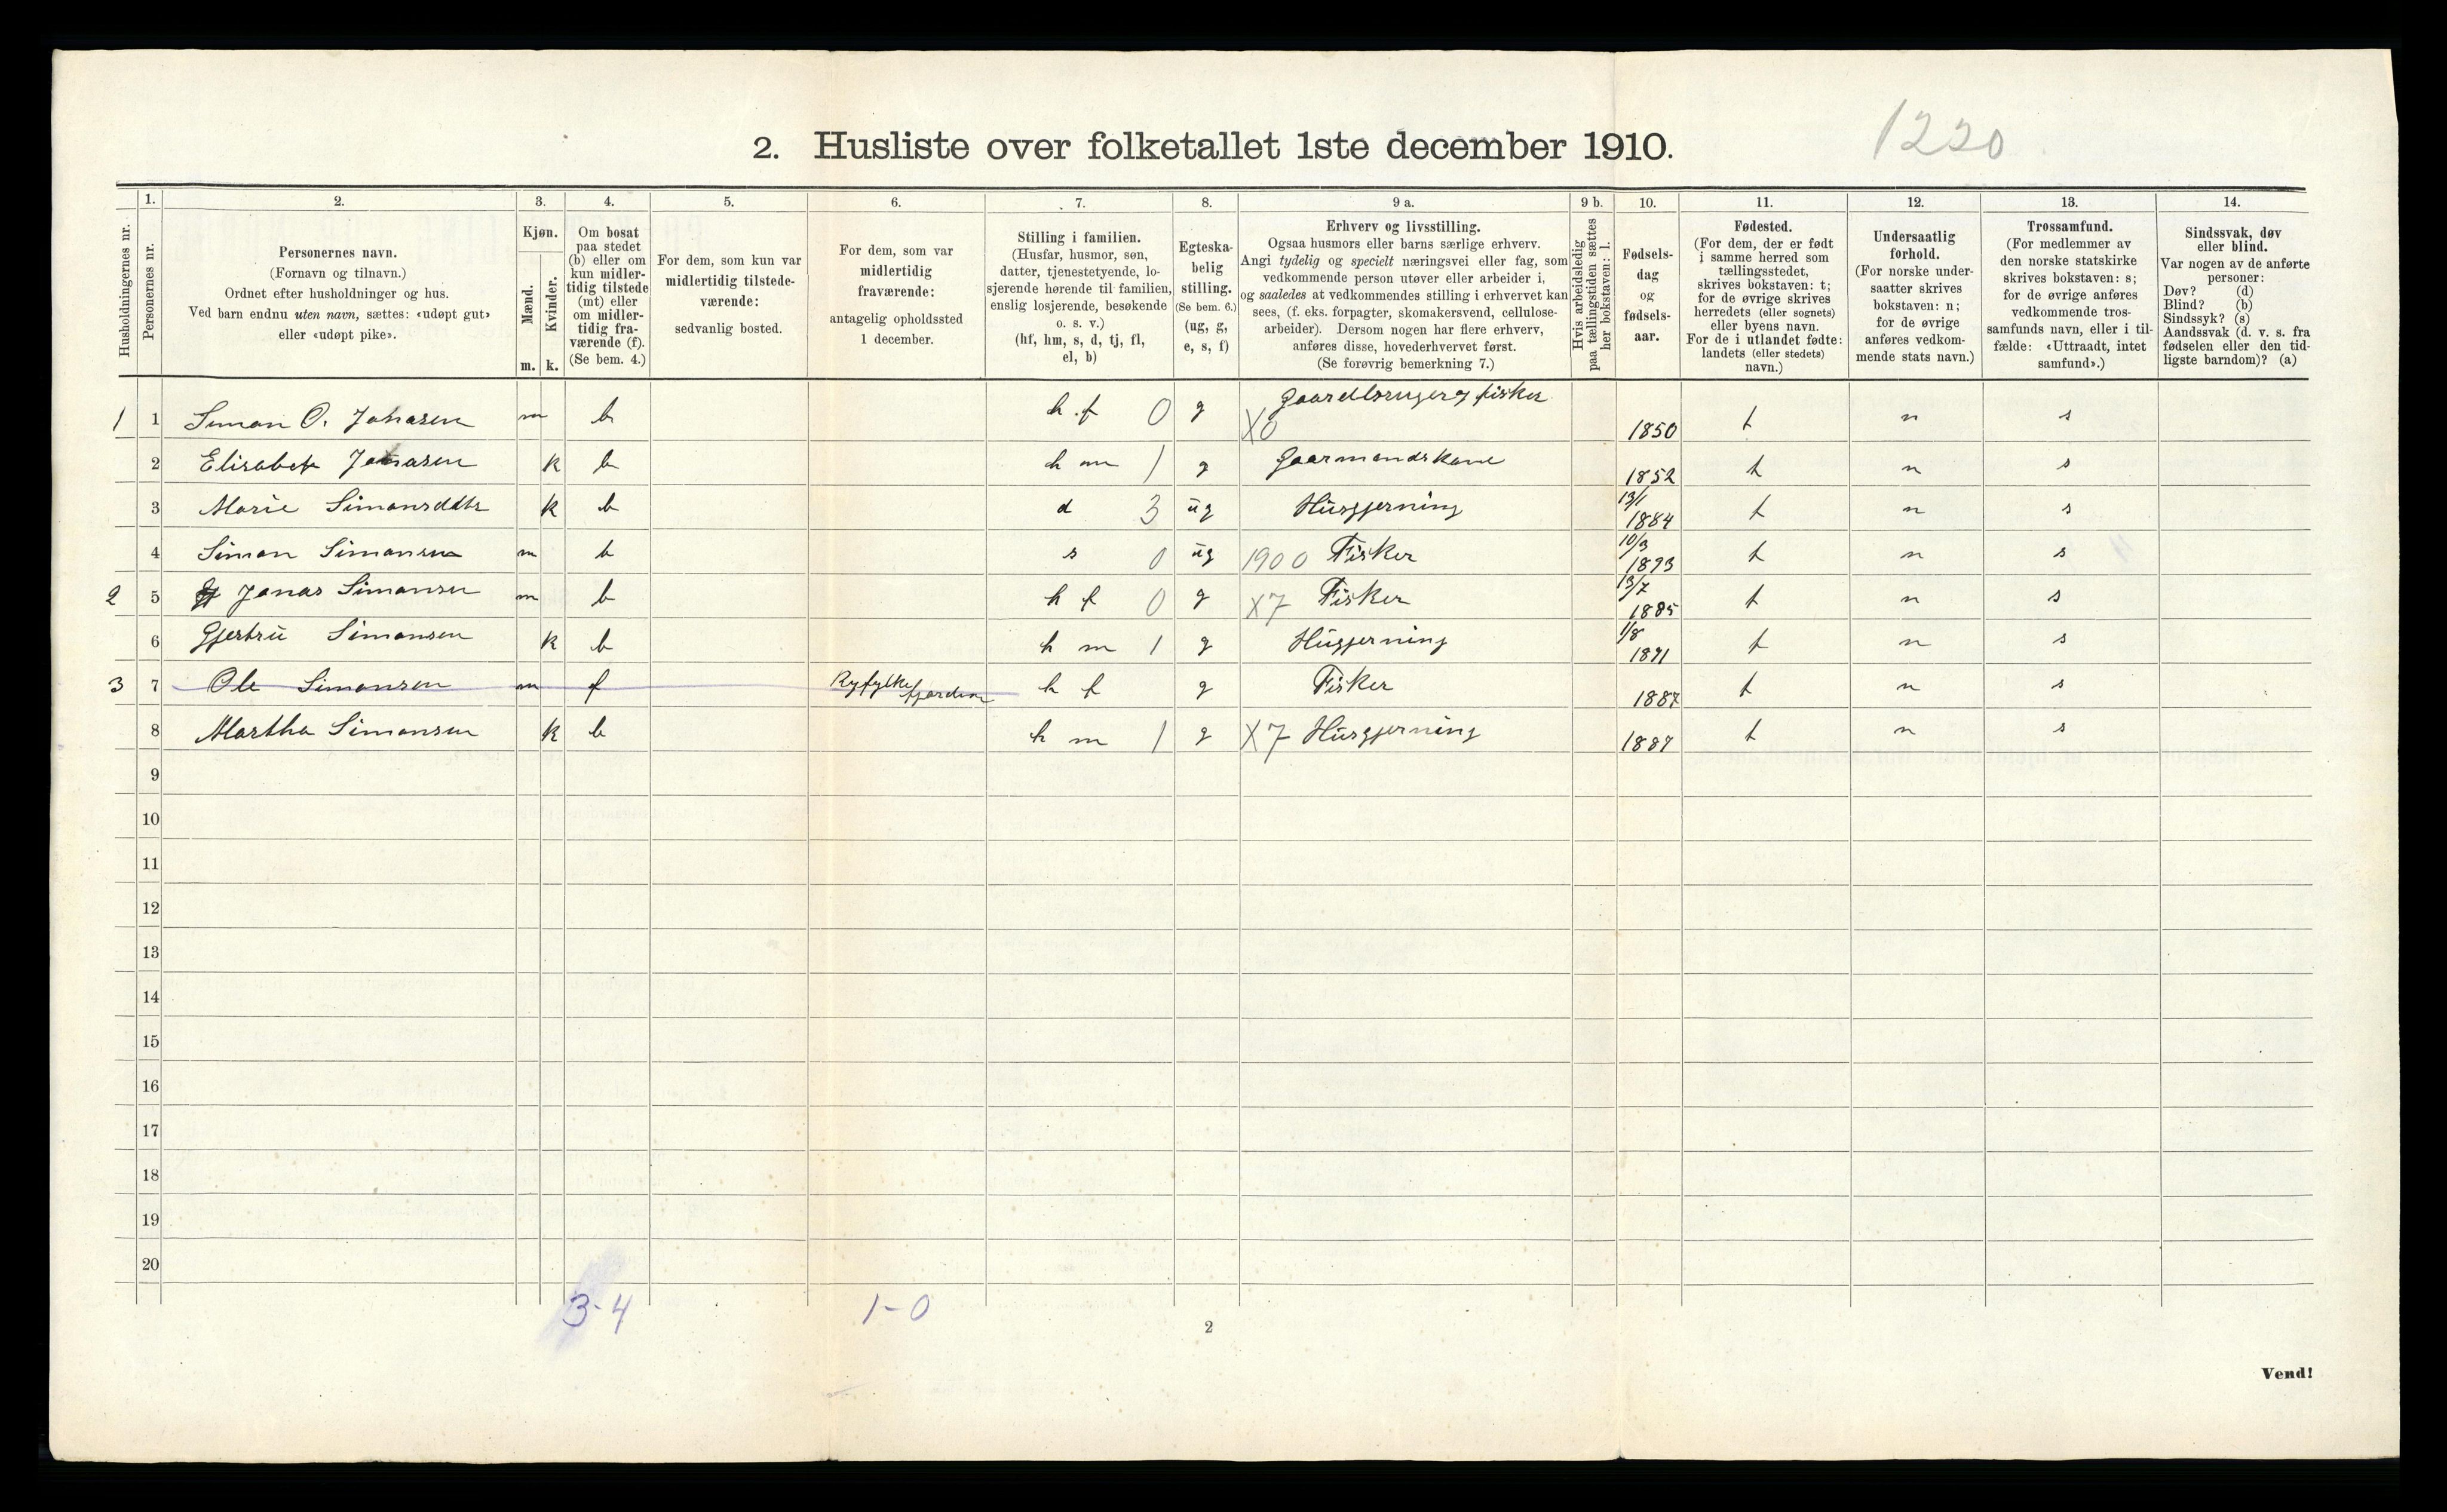 2. Husliste over folketallet 1ste december 1910.
1220
1. 2. 3. 4. 5. 6. 7. 8. 9 a. 9 b. 10. 11. 12. 13. 14.
Husholdningernes nr.
Personernes nr.
Personernes navn.
(Fornavn og tilnavn.)
Ordnet efter husholdninger og hus.
Ved barn endnu uten navn, sættes: «udøpt gut»
eller «udøpt pike».
Kjøn.
Mænd.
Kvinder.
m. k.
Om bosat
paa stedet
(b) eller om
kun midler-
tidig tilstede
(mt) eller
om midler-
tidig fra-
værende (f).
(Se bem. 4.)
For dem, som kun var
midlertidig tilstede-
værende:
sedvanlig bosted.
For dem, som var
midlertidig
fraværende:
antagelig opholdssted
1 december.
Stilling i familien.
(Husfar, husmor, søn,
datter, tjenestetyende, lo-
sjerende hørende til familien,
enslig losjerende, besøkende
o. s. v.)
(hf, hm, s, d, tj, fl,
el, b)
Egteska-
belig
stilling.
(Se bem. 6.)
(ug, g,
e, s, f)
Erhverv og livsstilling.
Ogsaa husmors eller barns særlige erhverv.
Angi tydelig og specielt næringsvei eller fag, som
vedkommende person utøver eller arbeider i,
og saaledes at vedkommendes stilling i erhvervet kan
sees, (f. eks. forpagter, skomakersvend, cellulose-
arbeider). Dersom nogen har flere erhverv,
anføres disse, hovederhvervet først.
(Se forøvrig bemerkning 7.)
Hvis arbeidsledig
paa tællingstiden sættes
her bokstaven: l.
Fødsels-
dag
og
fødsels-
aar.
Fødested.
(For dem, der er født
i samme herred som
tællingsstedet,
skrives bokstaven: t;
for de øvrige skrives
herredets (eller sognets)
eller byens navn.
For de i utlandet fødte:
landets (eller stedets)
navn.)
Undersaatlig
forhold.
(For norske under-
saatter skrives
bokstaven: n;
for de øvrige
anføres vedkom-
mende stats navn.)
Trossamfund.
(For medlemmer av
den norske statskirke
skrives bokstaven: s;
for de øvrige anføres
vedkommende tros-
samfunds navn, eller i til-
fælde: «Uttraadt, intet
samfund».)
Sindssvak, døv
eller blind.
Var nogen av de anførte
personer:
Døv? (d)
Blind? (b)
Sindssyk? (s)
Aandssvak (d. v. s. fra
fødselen eller den tid-
ligste barndom)? (a)
1 1 Simon O. Jonasen m b h.f 0 g Gaardbruger og fisker X0 1850 t n s
2 Elisabet Jonasen k b h m 1 g Gaarmandskone 1852 t n s
3 Marie Simonsddtr k b d 3 ug Husgjerning 13/1 1884 t n s
4 Simon Simonsen m b s 0 ug 1900 Fisker 10/3 1893 t n s
2 5 Jonas Simonsen m b h f 0 g X7 Fisker 13/7 1885 t n s
6 Gjertru Simonsen k b h m 1 g Husgjerning 1/8 1891 t n s
3 7 Ole Simonsen m f Ryfylkefjordene h f g Fisker 1887 t n s
8 Martha Simonsen k b h m 1 g X7 Husgjerning 1887 t n s
9
10
11
12
13
14
15
16
17
18
19
20
3-4 1-0
2
Vend!